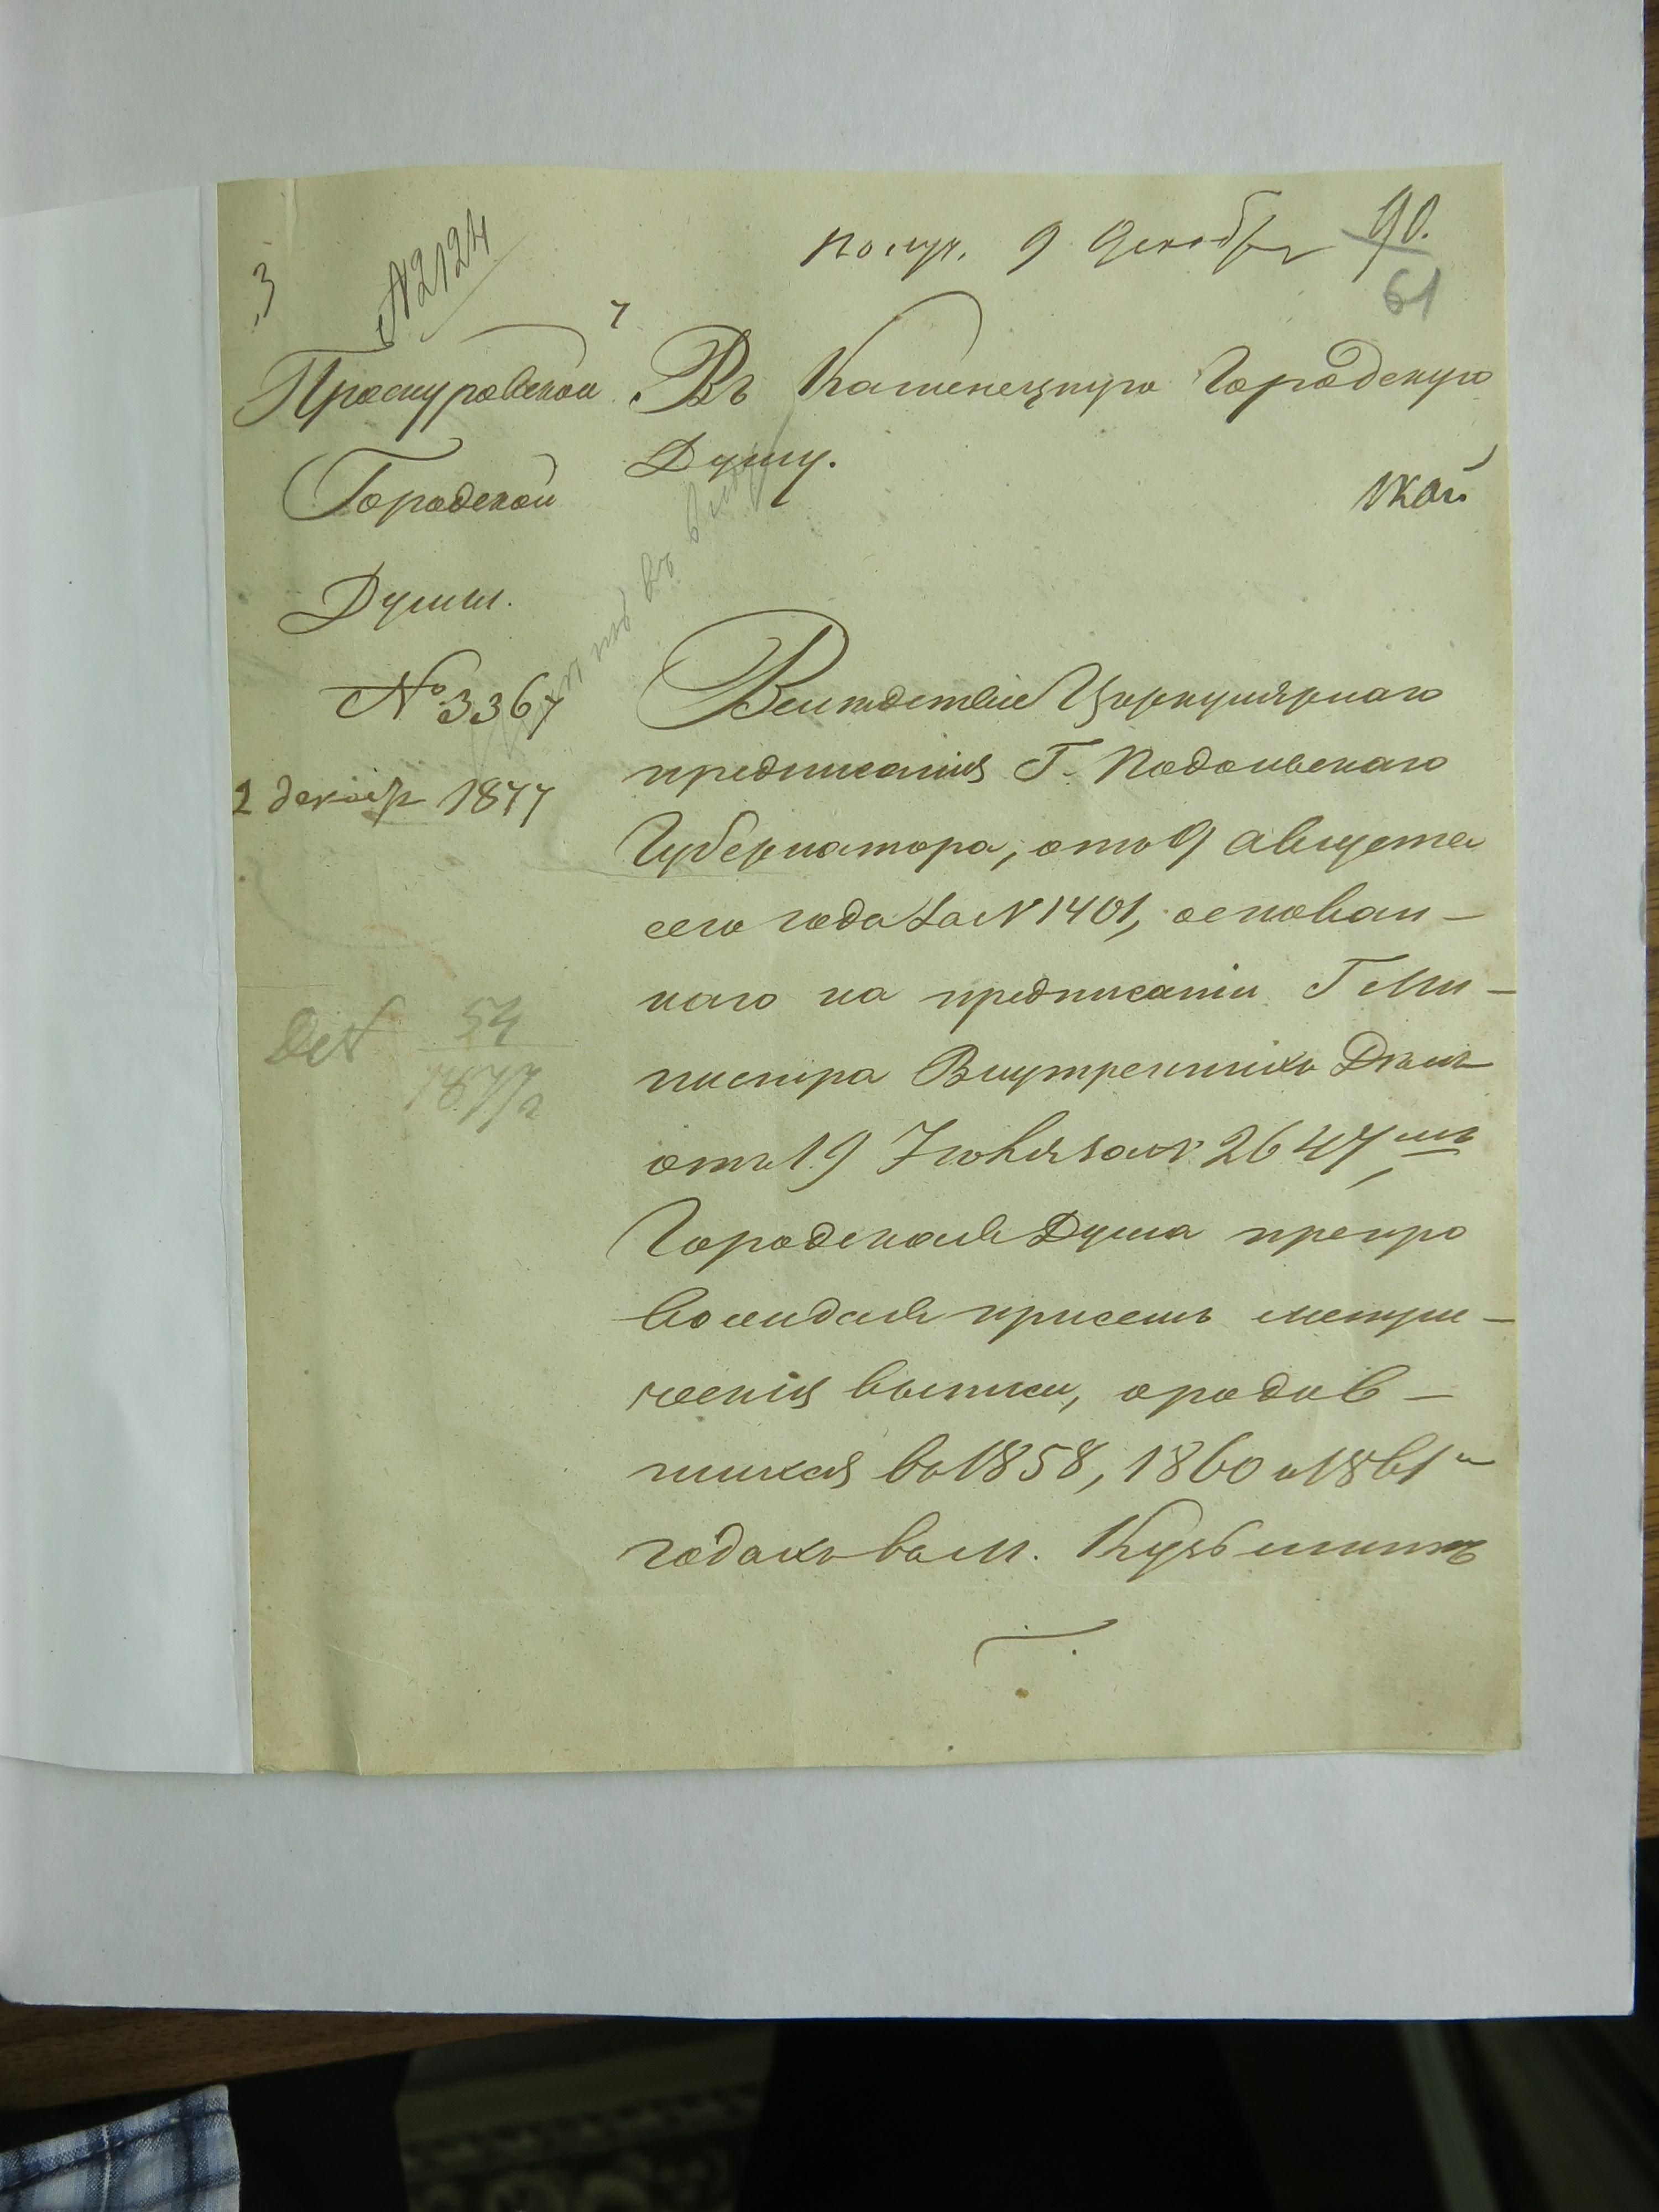 Получ. 9 Декабр 90.
61
3
№2124
Проскуровской
Городской
Думы.
№ 3367
2 декабр 1877
54
1877 г
Въ Каменецкую Городскую
Думу.
Вслѣдствіе Циркулярнаго
предписанія Г. Подольскаго
Губернатора, отъ 9 августа
сего года за № 1401, основан-
наго на предписаніи Г Ми-
нистра Внутреннихъ Дѣлъ
отъ 19 Іюня за № 2647,
Городская Дума препро
вождая присемъ метри-
ческія выписи, о родив-
шихся въ 1858, 1860 и 1861
годахъ въ м. Кузьминѣ